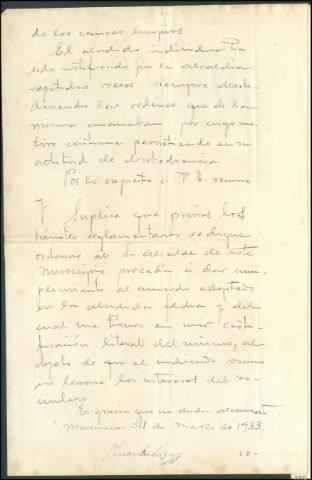 de los cauces limpios.
El aludido individuo ha
sido notificado por la alcaldia
repetidas veces, siempre desobe-
deciendo las ordenes que de la
misma emanaban por cuyo mo-
tivo continua persistiendo en su
actitud de desobediencia.
Por lo expuesto á V. E. recurre
y Suplica que previos los
trámites reglamentarios se digne
ordenar al Sr. Alcalde de este
Municipio proceda á dar cum-
plimiento al acuerdo adoptado
en la aludida fecha y del
cual me honro en unir certi-
ficación literal del mismo, al
objeto de que el indicado vecino
no lesione los intereses del ve-
cindario.
Es gracia que no duda alcanzar
31 de Marzo de 1933
Juan